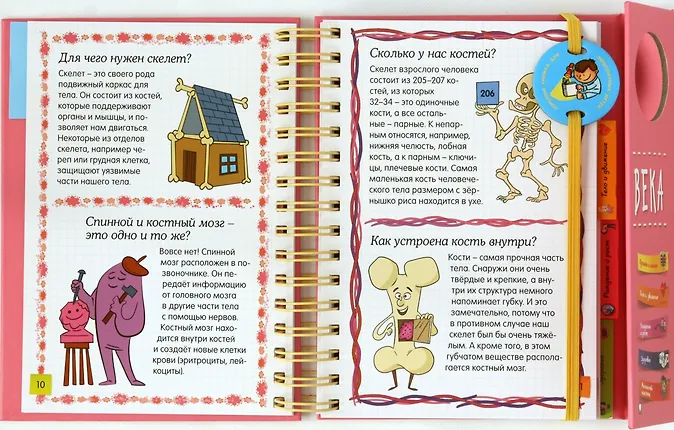 Для чего нужен скелет?
Скелет – это своего рода
подвижный каркас для
тела. Он состоит из костей,
которые поддерживают
органы и мышцы, и по-
зволяет нам двигаться.
Некоторые из отделов
скелета, например че-
реп или грудная клетка,
защищают уязвимые
части нашего тела.
Спинной и костный мозг –
это одно и то же?
Вовсе нет! Спинной
мозг расположен в по-
звоночнике. Он пе-
редаёт информацию
от головного мозга
в другие части тела
с помощью нервов.
Костный мозг нахо-
дится внутри костей
и создаёт новые клетки
крови (эритроциты, лей-
коциты).
10
Сколько у нас костей?
Скелет взрослого человека
состоит из 205–207 ко-
стей, из которых
32–34 – это одиночные
кости, а все осталь-
ные – парные. К непар-
ным относятся, например,
нижняя челюсть, лобная
кость, а к парным – ключи-
цы, плечевые кости. Самая
маленькая кость человечес-
кого тела размером с зёр-
нышко риса находится в ухе.
206
Как устроена кость внутри?
Кости – самая прочная часть
тела. Снаружи они очень
твёрдые и крепкие, а вну-
три их структура немного
напоминает губку. И это
замечательно, потому что
в противном случае наш
скелет был бы очень тяжё-
лым. А кроме того, в этом
губчатом веществе распола-
гается костный мозг.
Тело и движение
ВЕКА